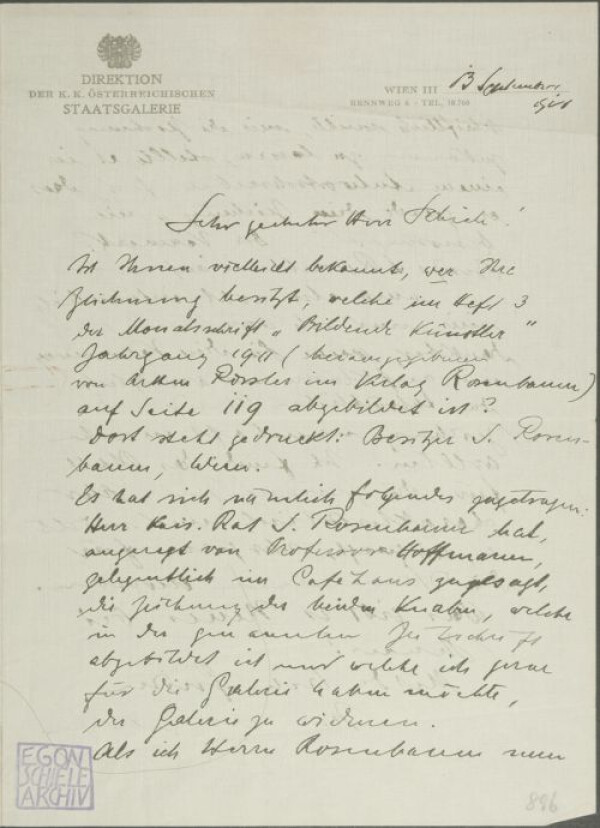 DIREKTION
DER K. K. ÖSTERREICHISCHEN
STAATSGALERIE
WIEN III
RENNWEG 6 - TEL.
September
Sehr geehrter Herr Schiele!
Ist Ihnen vielleicht bekannt, wer Ihre
Zeichnung besitzt, welche im Heft 3
der Monatsschrift „Bildende Künstler"
Jahrgang 1911 (herausgegeben
von Arthur Rössler im Verlag Rosenbaum)
auf Seite 119 abgebildet ist?
Dort steht gedruckt: Besitzer S. Rosen-
baum, Wien.
Es hat sich nämlich folgendes zugetragen:
Herr Kais. Rat S. Rosenbaum hat,
angeregt von Professor Hoffmann,
gelegentlich im Caféhaus zugesagt,
die Zeichnung der beiden Knaben, welche
in der genannten Zeitschrift
abgebildet ist und welche ich gerne
für die Galerie haben möchte,
der Galerie zu widmen.
Als ich Herrn Rosenbaum nun
EGON
SCHIELE
ARCHIV
886